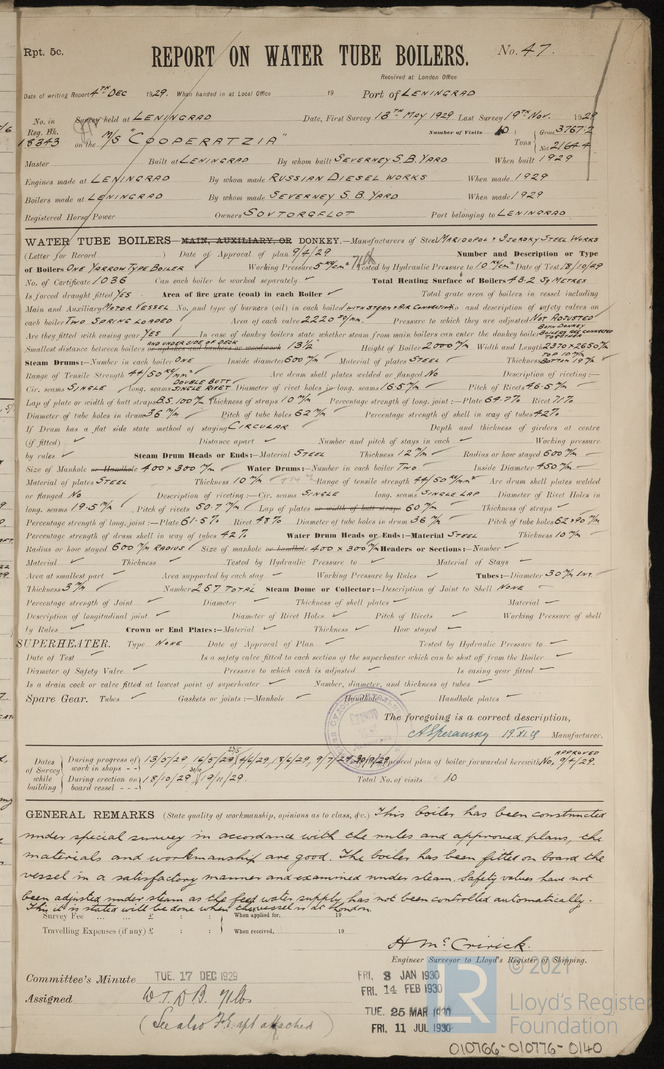 Rpt. 5c.
REPORT ON WATER TUBE BOILERS.
No. 47.
Received at London Office
Date of writing Report 4TH DEC 1929. When handed in at Local Office 19 Port of LENINGRAD
No. in Survey held at LENINGRAD Date, First Survey 18TH MAY 1929 Last Survey 19TH Nov. 1929
Reg. Bk. Number of Visits 10 Gross 3767.2
18343 on the M/S "COOPERATZIA" Tons Net 2164.4
Master Built at LENINGRAD By whom built SEVERNEY S.B. YARD When built 1929
Engines made at LENINGRAD By whom made RUSSIAN DIESEL WORKS When made 1929
Boilers made at LENINGRAD By whom made SEVERNEY S.B. YARD When made 1929
Registered Horse Power Owners SOVTORGFLOT Port belonging to LENINGRAD
WATER TUBE BOILERS MAIN, AUXILIARY, OR DONKEY.—Manufacturers of Steel MARIOOPOL & ISORSKY STEEL WORKS
(Letter for Record ) Date of Approval of plan 9/4/29 Number and Description or Type
of Boilers ONE YARROW TYPE BOILER Working Pressure 5 Tested by Hydraulic Pressure to 10 Date of Test 18/10/29
No. of Certificate 1036 Can each boiler be worked separately ✓ Total Heating Surface of Boilers 43.2 SQ METRES
Is forced draught fitted YES Area of fire grate (coal) in each Boiler ✓ Total grate area of boilers in vessel including
Main and Auxiliary MOTOR VESSEL No. and type of burners (oil) in each boiler and description of safety valves on
each boiler TWO SPRING LOADED Area of each valve 2220 Pressure to which they are adjusted NOT ADJUSTED
Are they fitted with easing gear YES In case of donkey boilers state whether steam from main boilers can enter the donkey boiler BOTH DONKEY BOILERS ARE CONNECTED TOGETHER
Smallest distance between boilers or uptakes and bunkers or woodwork AND UNDER SIDE OF DECK 13½ Height of Boiler 2000 m/m Width and Length 2370×2650 m/m
Steam Drums:—Number in each boiler ONE Inside diameter 600 m/m Material of plates STEEL Thickness TOP 10 m/m BOTTOM 19 m/m
Range of Tensile Strength 44/50 Are drum shell plates welded or flanged NO Description of riveting:—
Cir. seams SINGLE long. seams DOUBLE BUTT SINGLE RIVET Diameter of rivet holes in long. seams 16.5 m/m Pitch of Rivets 46.5 m/m
Lap of plate or width of butt straps B.S. 100 m/m Thickness of straps 10 m/m Percentage strength of long. joint:—Plate 64.7% Rivet 71%
Diameter of tube holes in drum 36 m/m Pitch of tube holes 62 m/m Percentage strength of shell in way of tubes 42%
If Drum has a flat side state method of staying CIRCULAR Depth and thickness of girders at centre
(if fitted) ✓ Distance apart ✓ Number and pitch of stays in each ✓ Working pressure
by rules ✓ Steam Drum Heads or Ends:—Material STEEL Thickness 12 m/m Radius or how stayed 600 m/m
Size of Manhole or Handhole 400×300 m/m Water Drums:—Number in each boiler TWO. Inside Diameter 450 m/m
Material of plates STEEL Thickness 10 m/m Range of tensile strength 44/50 Are drum shell plates welded
or flanged NO Description of riveting:—Cir. seams SINGLE long. seams SINGLE LAP Diameter of Rivet Holes in
long. seams 19.5 m/m Pitch of rivets 50.7 m/m Lap of plates or width of butt straps 60 m/m Thickness of straps ✓
Percentage strength of long. joint:—Plate 61.5% Rivet 43% Diameter of tube holes in drum 36 m/m Pitch of tube holes 62×40 m/m
Percentage strength of drum shell in way of tubes 42% Water Drum Heads or Ends:—Material STEEL Thickness 10 m/m
Radius or how stayed 600 m/m RADIUS Size of manhole or handhole 400×300 m/m Headers or Sections:—Number ✓
Material ✓ Thickness ✓ Tested by Hydraulic Pressure to ✓ Material of Stays ✓
Area at smallest part ✓ Area supported by each stay ✓ Working Pressure by Rules ✓ Tubes:—Diameter 30 m/m INT.
Thickness 3 m/m Number 267 TOTAL Steam Dome or Collector:—Description of Joint to Shell NONE ✓
Percentage strength of Joint ✓ Diameter ✓ Thickness of shell plates ✓ Material ✓
Description of longitudinal joint ✓ Diameter of Rivet Holes ✓ Pitch of Rivets ✓ Working Pressure of shell
by Rules ✓ Crown or End Plates:—Material ✓ Thickness ✓ How stayed ✓
SUPERHEATER. Type NONE Date of Approval of Plan ✓ Tested by Hydraulic Pressure to ✓
Date of Test ✓ Is a safety valve fitted to each section of the superheater which can be shut off from the Boiler ✓
Diameter of Safety Valve ✓ Pressure to which each is adjusted ✓ Is easing gear fitted ✓
Is a drain cock or valve fitted at lowest point of superheater ✓ Number, diameter, and thickness of tubes ✓
Spare Gear. Tubes ✓ Gaskets or joints:—Manhole ✓ Handhole ✓ Handhole plates ✓
The foregoing is a correct description,
Manufacturer.
Dates of Survey while building
During progress of work in shops - - 13/5/29 16/5/29 4/6/29 18/6/29 9/7/29 30/9/29 approved plan of boiler forwarded herewith No. APPROVED 9/4/29.
During erection on board vessel - - - 18/10/29 19/11/29. Total No. of visits 10
GENERAL REMARKS (State quality of workmanship, opinions as to class, &c.) This boiler has been constructed
under special survey in accordance with the rules and approved plans, the
materials and workmanship are good. The boiler has been fitted on board the
vessel in a satisfactory manner and examined under steam. Safety valves have not
been adjusted under steam as the feed water supply has not been controlled automatically.
This it is stated will be done when the vessel is at London.
Survey Fee ... ... £ : : When applied for, 19
Travelling Expenses (if any) £ : : When received, 19
H McCririck.
Engineer Surveyor to Lloyd's Register of Shipping.
Committee's Minute TUE. 17 DEC 1929
FRI. 3 JAN 1930
FRI. 14 FEB 1930
Assigned
TUE. 25 MAR 1930
(See also F.E. rpt attached)
FRI. 11 JUL 1930
LR
© 2021
Lloyd's Register
Foundation
010766-010776-0140